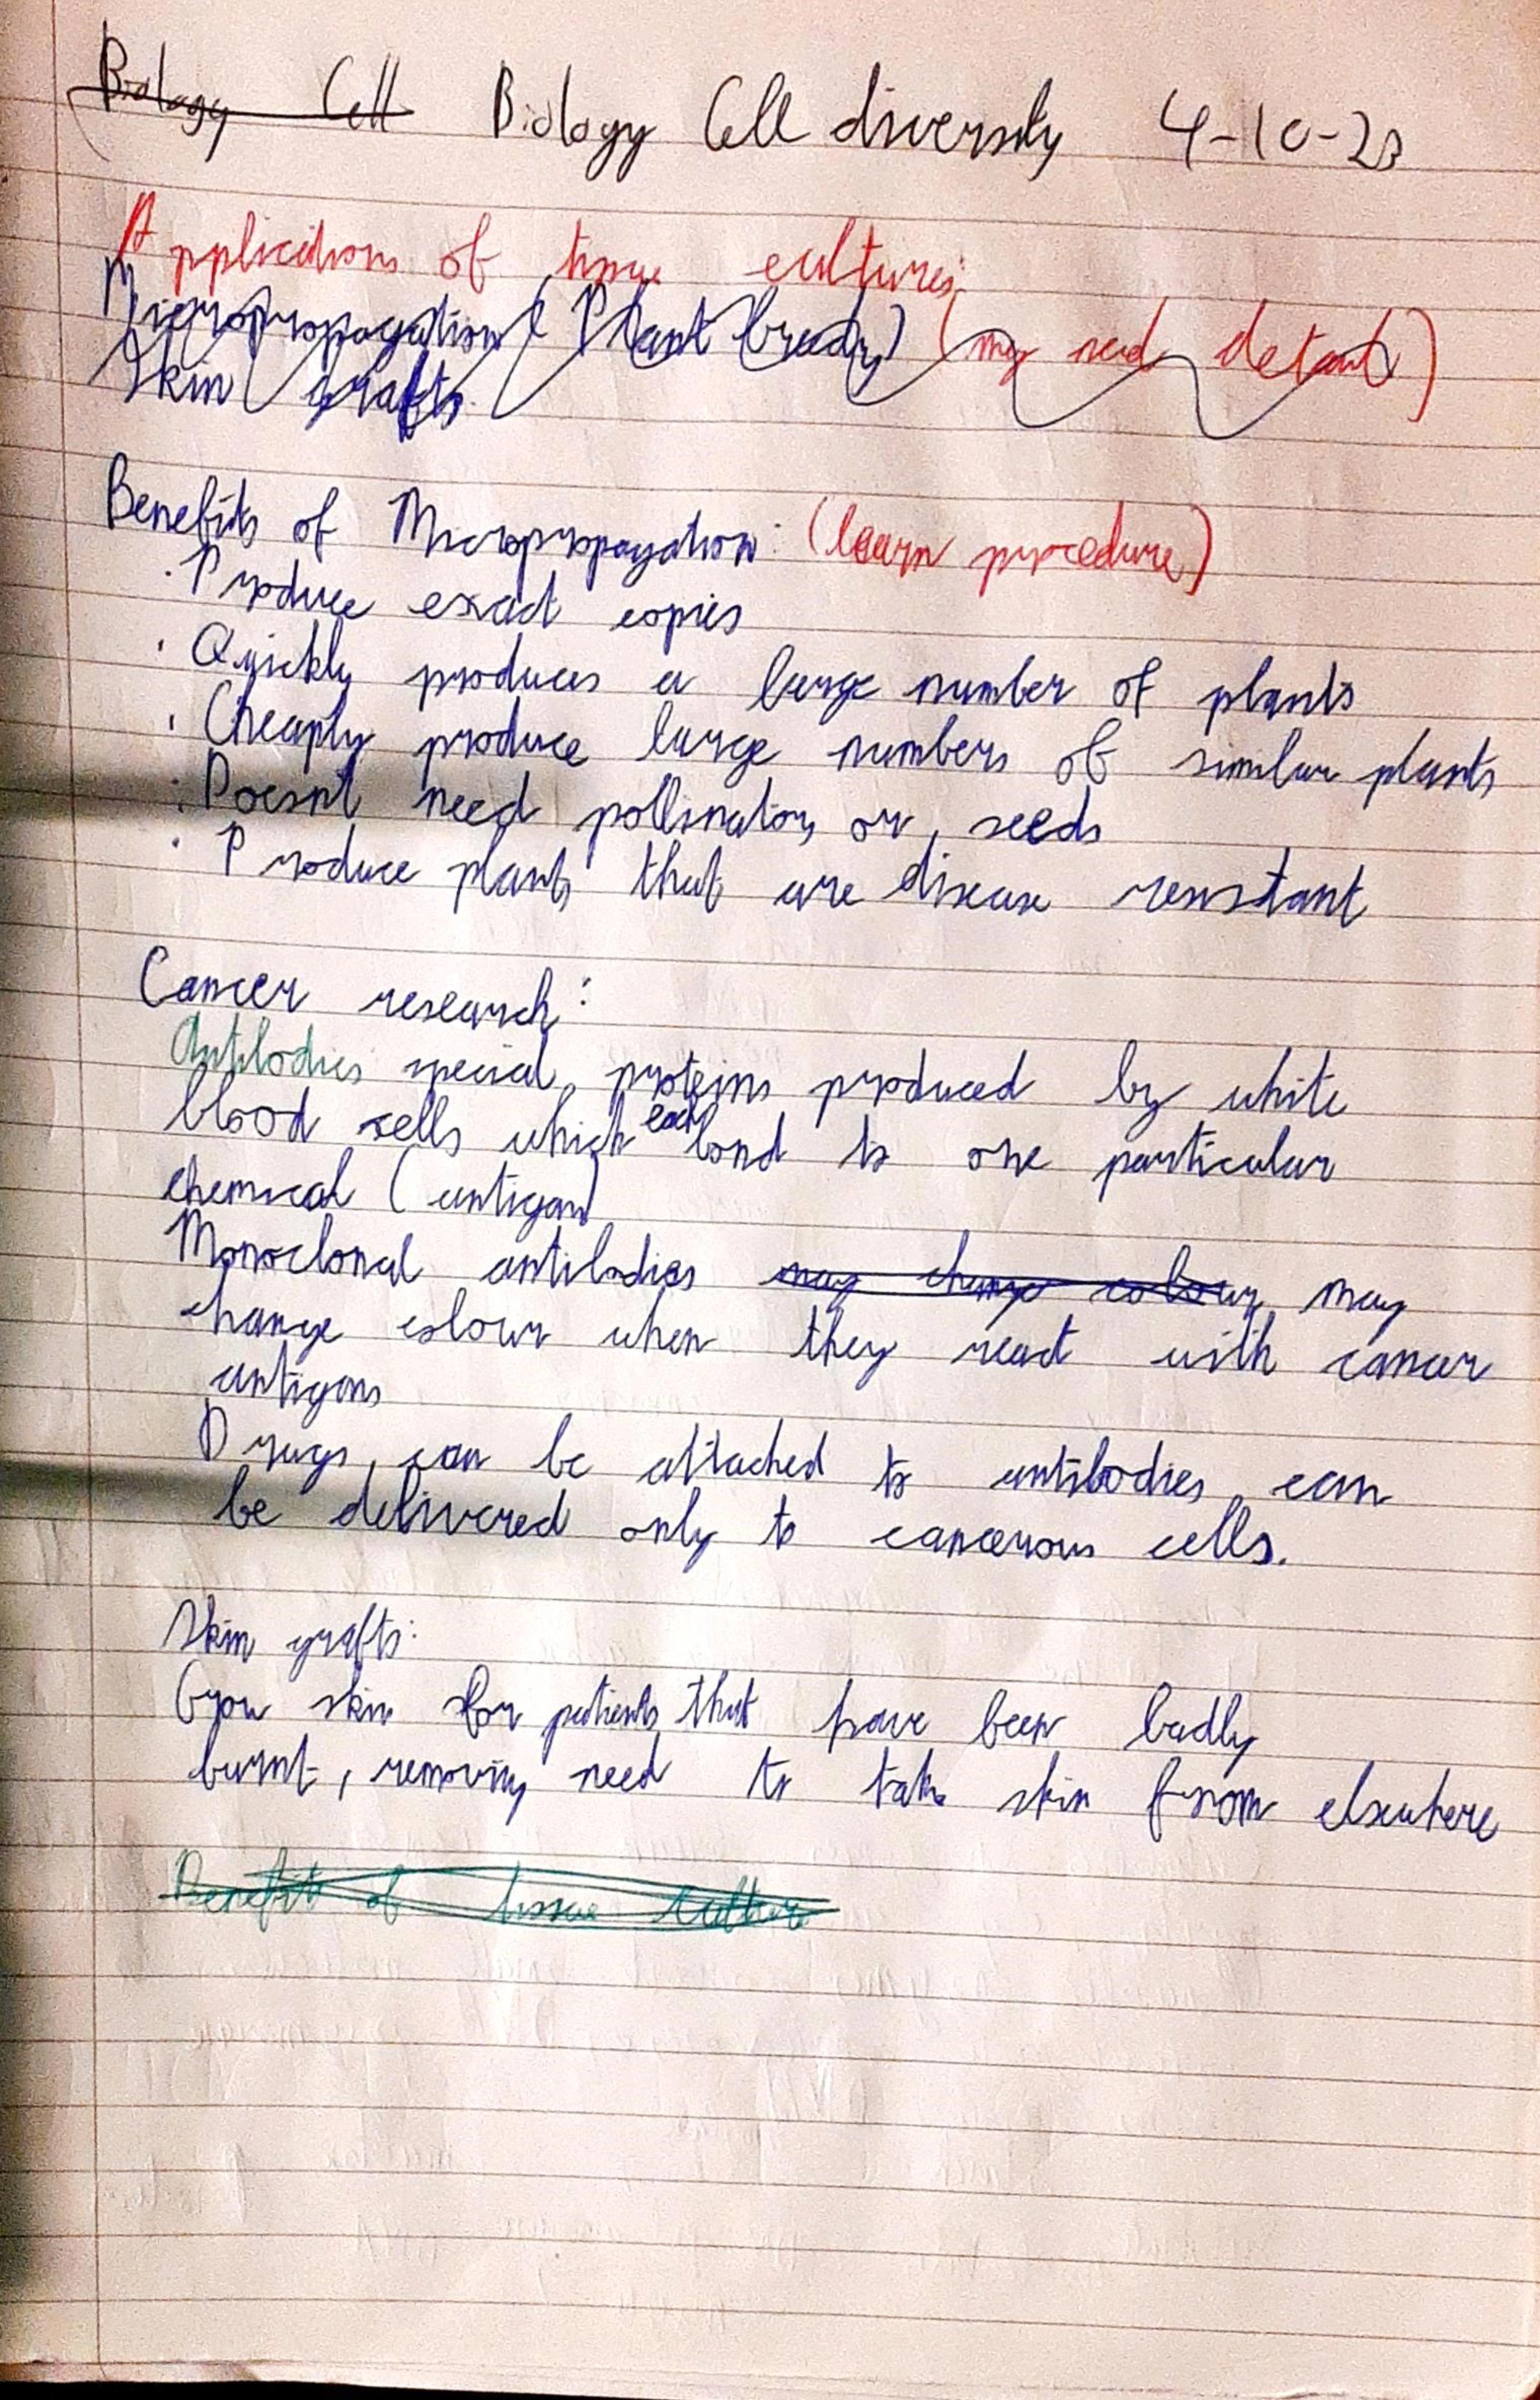 Biology Cell Biology Cell diversity 4-10-23
Applications of tissue cultures:
Micropropagation (Plant breeding) (may need detail)
Skin grafts
Benefits of Micropropagation: (learn procedure)
· Produce exact copies
· Quickly produces a large number of plants
· Cheaply produce large numbers of similar plants
· Doesnt need pollinators or seeds
· Produce plants that are disease resistant
Cancer research:
Antibodies special proteins produced by white
blood cells which each bond to one particular
chemical (antigen)
Monoclonal antibodies may change colour may
change colour when they react with cancer
antigens
Drugs can be attached to antibodies can
be delivered only to cancerous cells.
Skin grafts:
Grow skin for patients that have been badly
burnt, removing need to take skin from elsewhere
Benefit of tissue culture